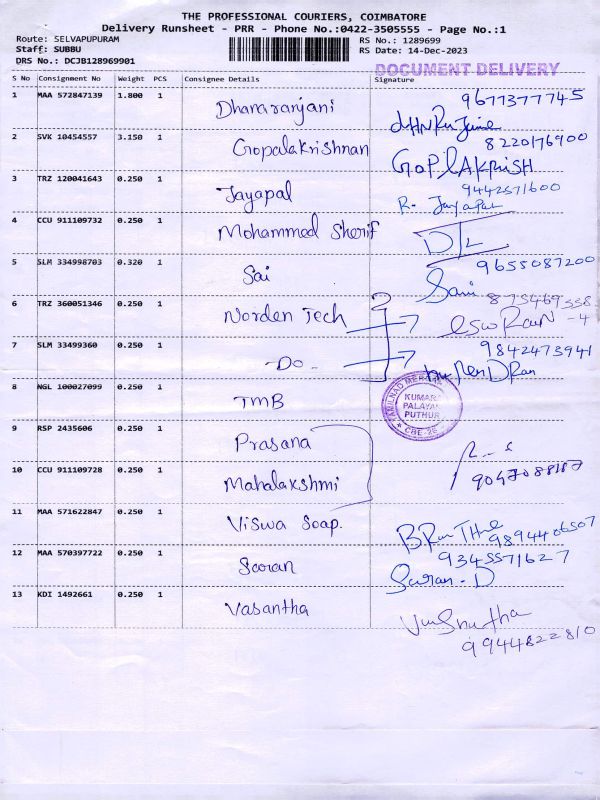 THE PROFESSIONAL COURIERS, COIMBATORE
Delivery Runsheet - PRR - Phone No.:0422-3505555 - Page No.:1
Route: SELVAPUPURAM RS No.: 1289699
Staff: SUBBU RS Date: 14-Dec-2023
DRS No.: DCJB128969901
DOCUMENT DELIVERY
S No Consignment No Weight PCS Consignee Details Signature
1 MAA 572847139 1.800 1 Dhanaranjani 9677377745
2 SVK 10454557 3.150 1 Gopalakrishnan 8220176900
GOPLAKRISH
3 TRZ 120041643 0.250 1 Jayapal 9442571600
R. Jayapal
4 CCU 911109732 0.250 1 Mohammed Sherif
5 SLM 334998703 0.320 1 Sai 9655087200
Sani
6 TRZ 360051346 0.250 1 Norden Tech
7 SLM 33499360 0.250 1 -Do- 9842473941
8 NGL 100027099 0.250 1 TMB
TAMILNAD MERCANTILE
KUMARA
PALAYAM
PUTHUR
CBE-26
9 RSP 2435606 0.250 1 Prasana
10 CCU 911109728 0.250 1 Mahalakshmi
11 MAA 571622847 0.250 1 Viswa Soap. 9894406507
12 MAA 570397722 0.250 1 Saran 9345571627
Saran. D
13 KDI 1492661 0.250 1 Vasantha
9944822810